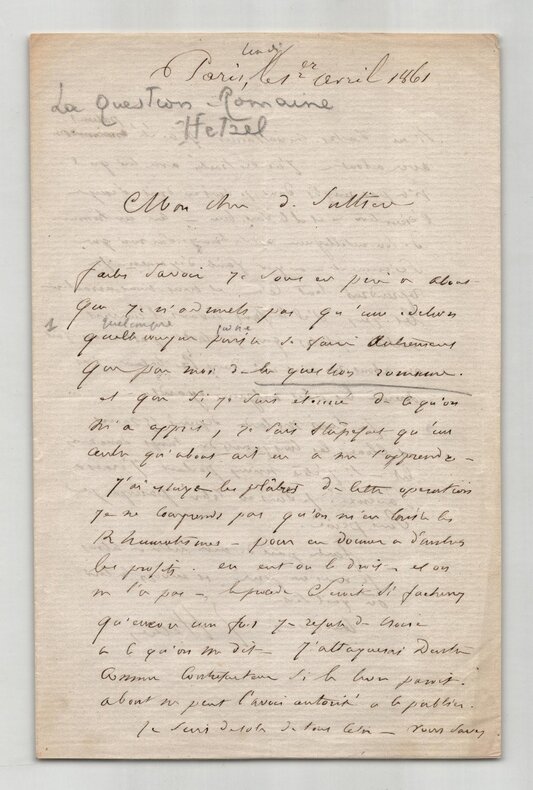 lundi
Paris, le 1er avril 1861
La Question Romaine
Hetzel
Mon cher d.
faites savoir je vous en prie a about
que je n'admets pas qu'une edition
1 quelconque faire
quelconque puisse se faire autrement
que par moi de la question romaine.
et que si je suis étonné de ce qu'on
m'a appris, je suis stupéfait qu'un
autre qu'about ait eu a me l'apprendre –
J'ai essuyé les plâtres de cette operation
je ne comprends pas qu'on m'en laisse les
Rhumatismes – pour en donner a d'autres
les profits. en eut on le droit – et on
ne l'a pas – le procédé serait si facheux
qu'encore une fois je refuse de croire
a ce qu'on me dit – J'attaquerai Dentu
comme contrefacteur si le livre parait.
about ne peut l'avoir autorisé a le publier.
Je suis désolé de tout cela – vous savez